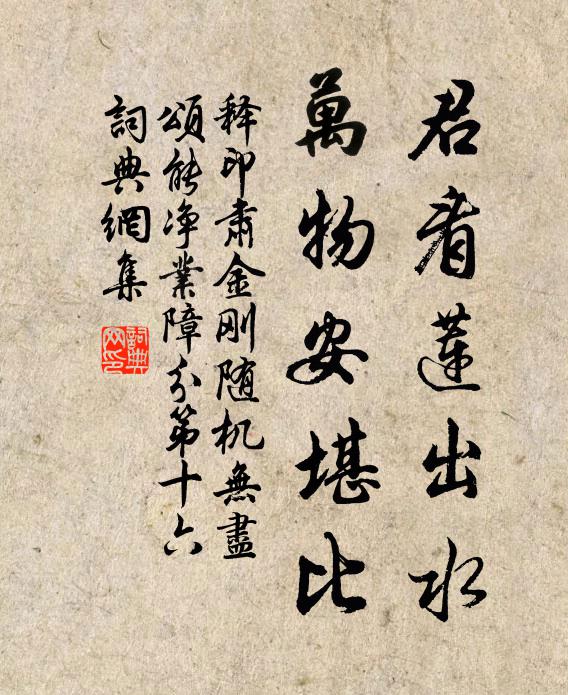 君看蓮出水
萬物安堪比
释印肃金刚随机無盡
頌能净業障分第十六
詞典網集
詞典网印